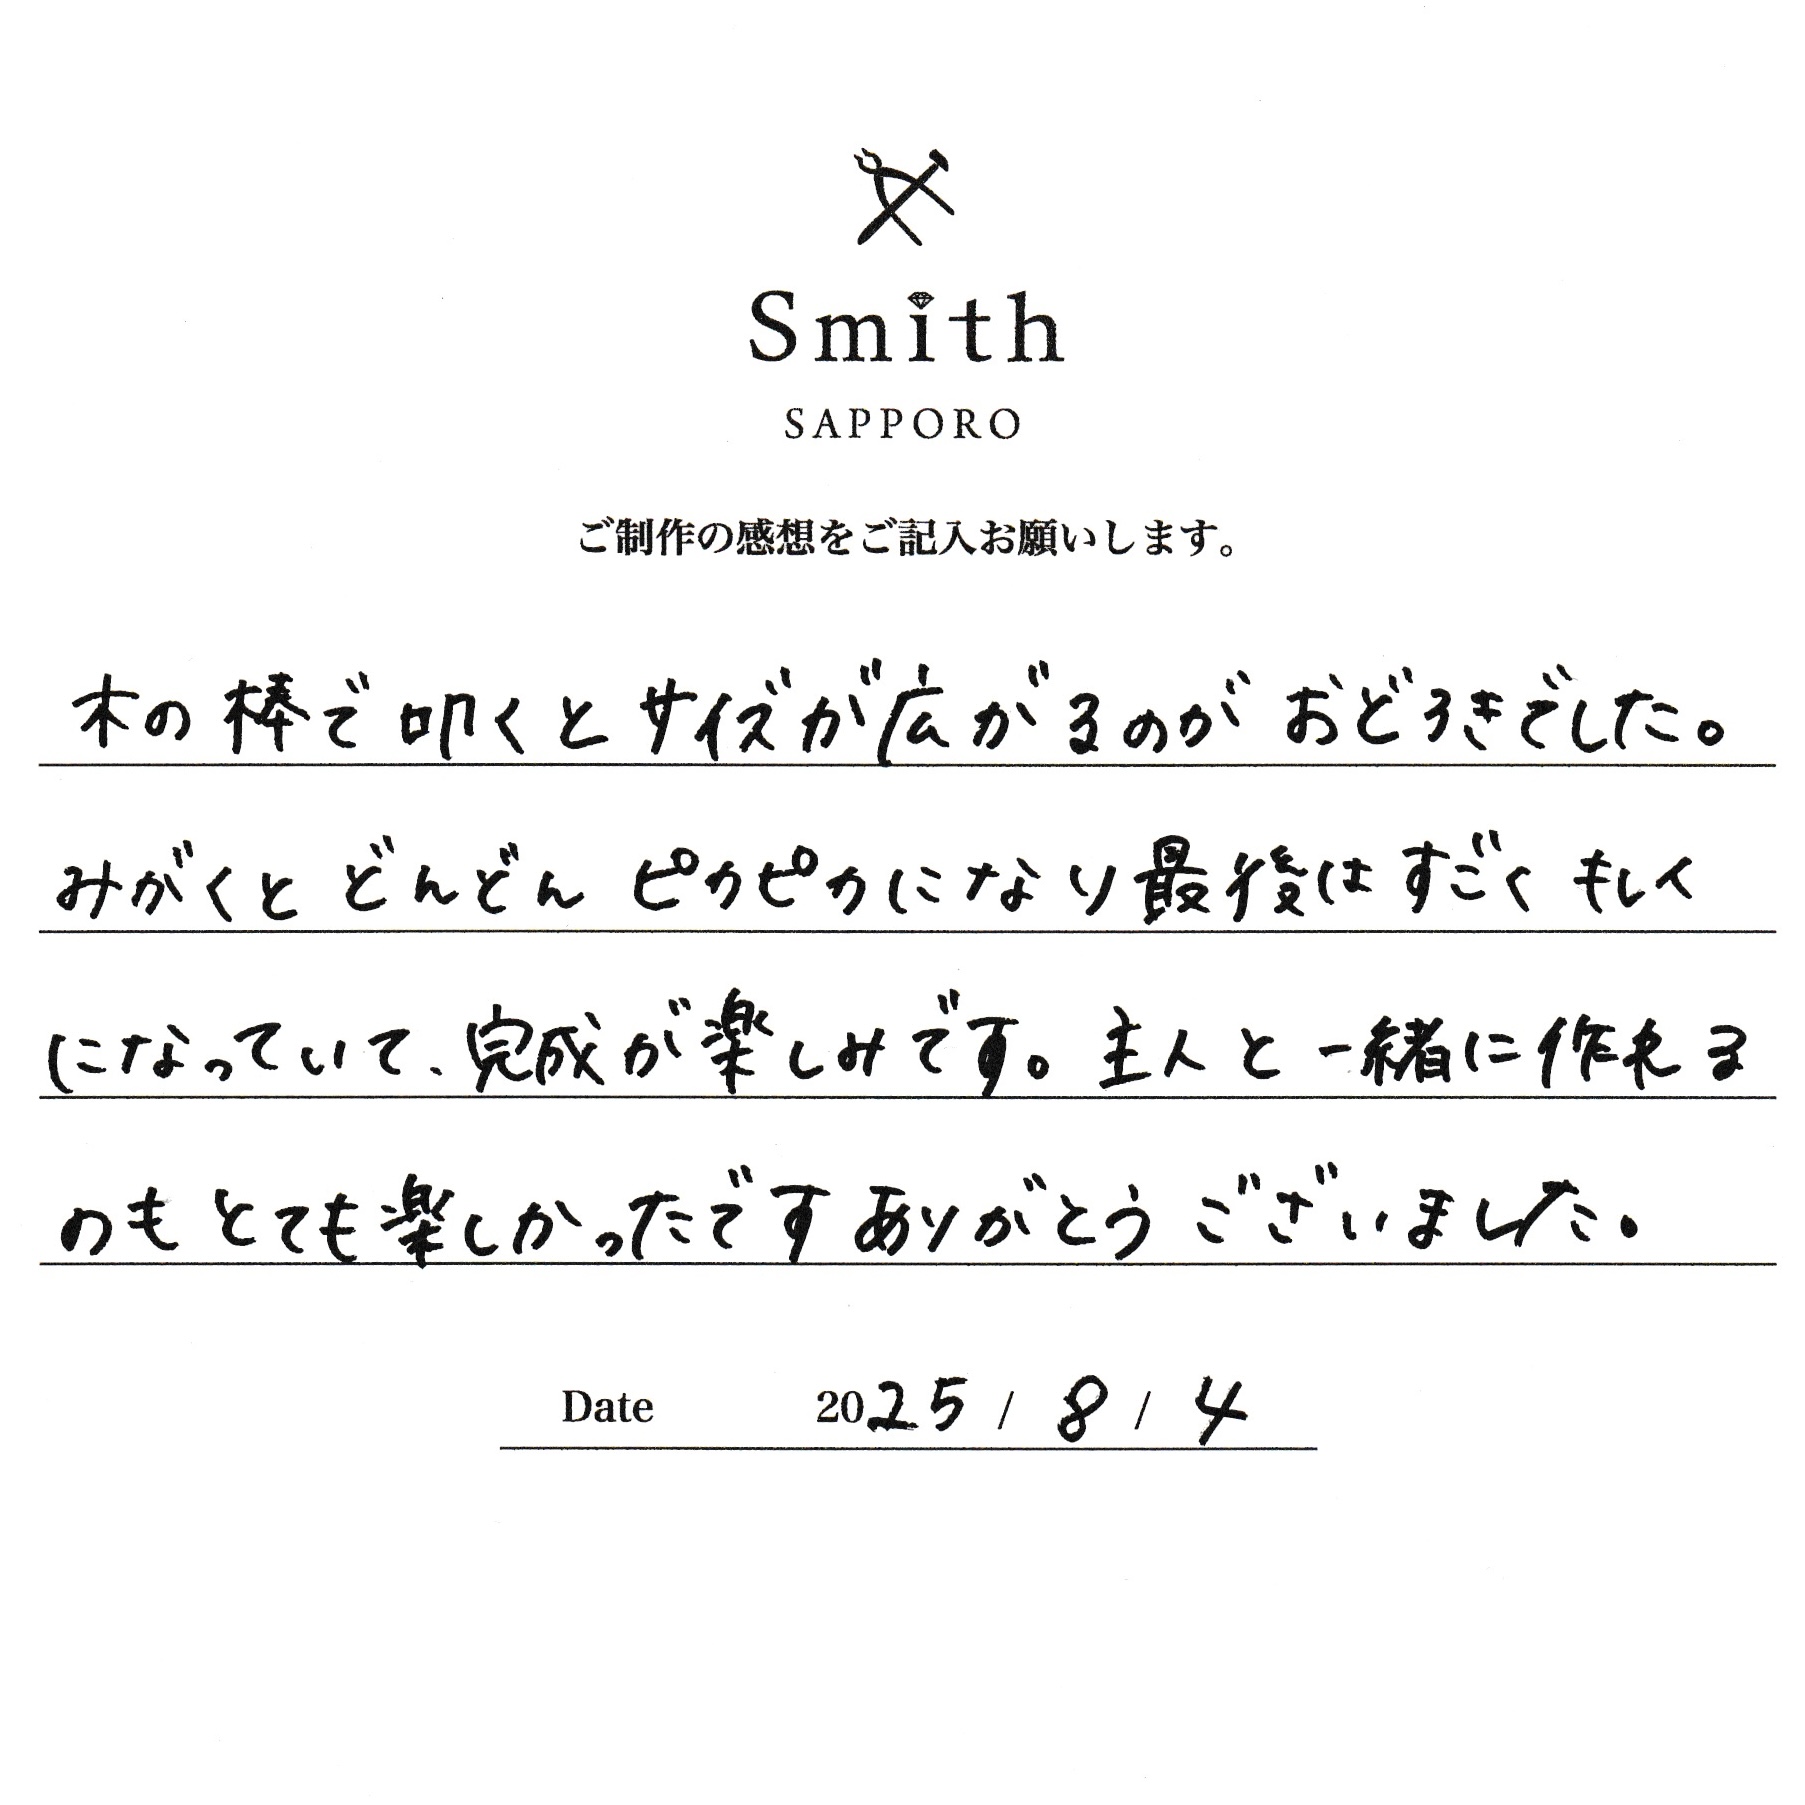 Smith
SAPPORO
ご制作の感想をご記入お願いします。
木の棒で叩くとサイズが広がるのがおどろきでした。
みがくとどんどんピカピカになり最後はすごくキレイ
になっていて、完成が楽しみです。主人と一緒に作れる
のもとても楽しかったですありがとうございました。
Date 2025 / 8 / 4